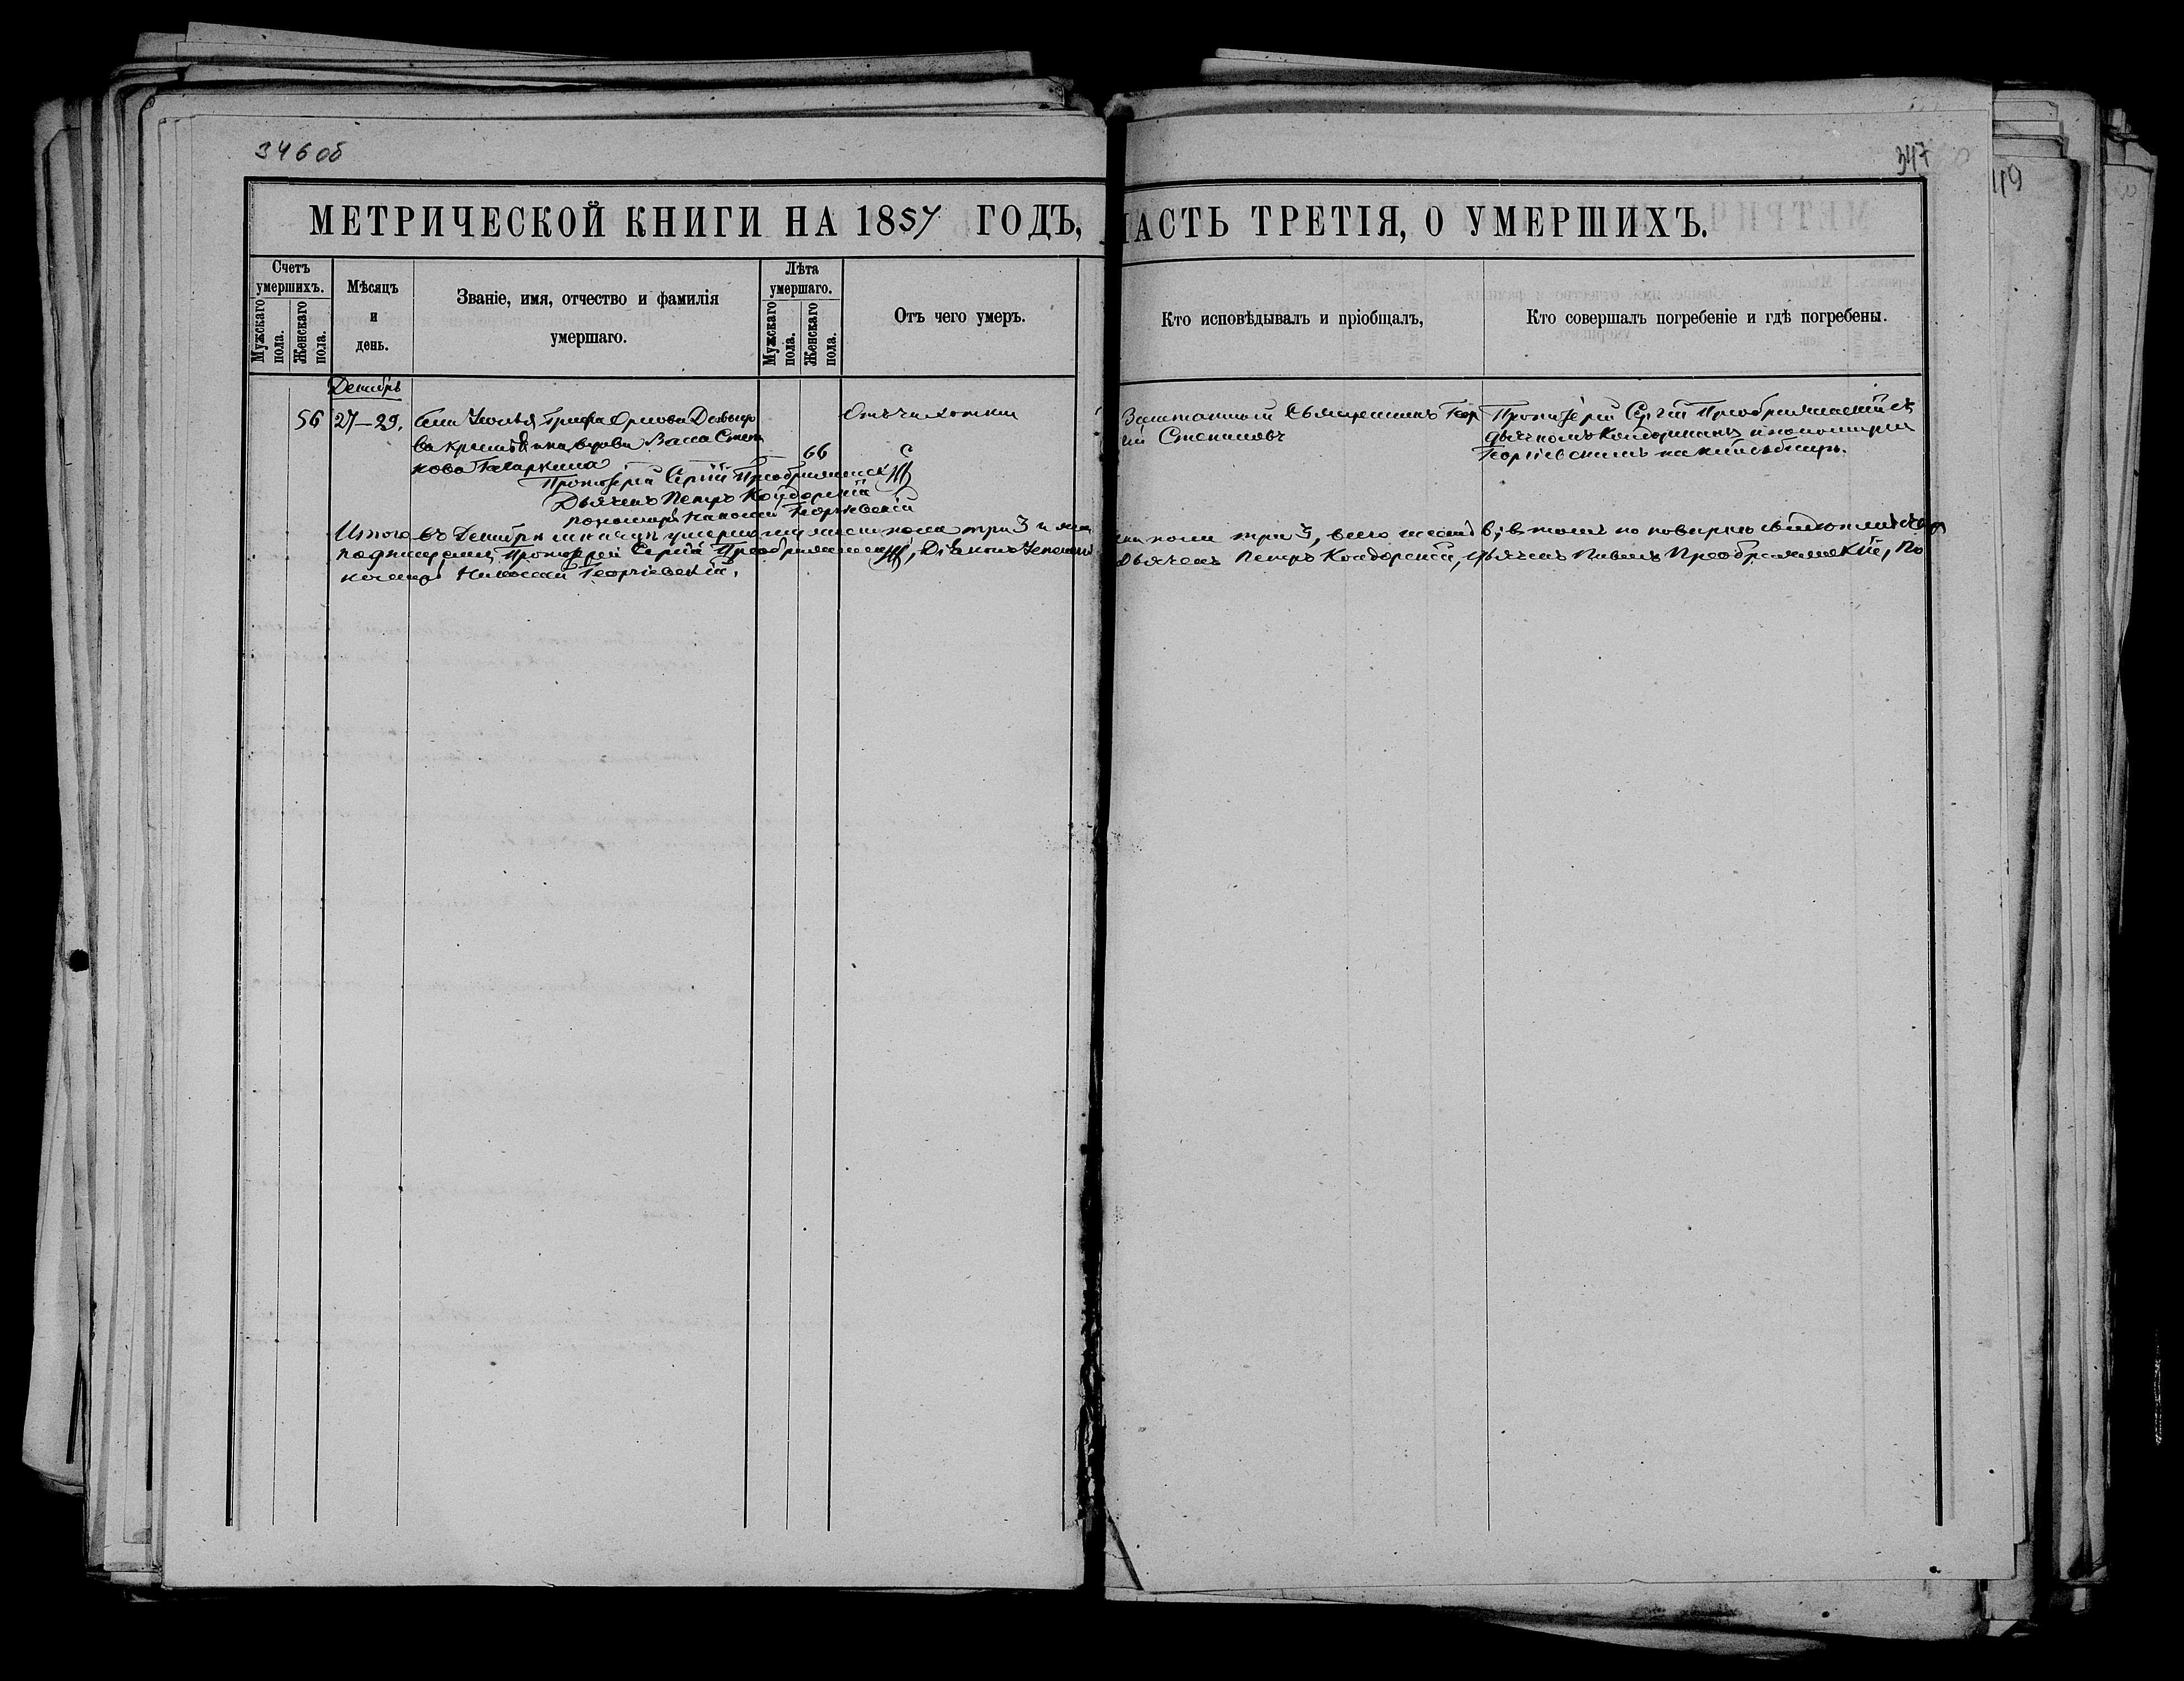 346 об
347
119
МЕТРИЧЕСКОЙ КНИГИ НА 1857 ГОДЪ, ЧАСТЬ ТРЕТІЯ, О УМЕРШИХЪ.
Счетъ умершихъ.
Мужскаго пола.
Женскаго пола.
Мѣсяцъ и день.
Званіе, имя, отчество и фамилія умершаго.
Лѣта умершаго.
Мужскаго пола.
Женскаго пола.
Отъ чего умеръ.
Кто исповѣдывалъ и пріобщалъ,
Кто совершалъ погребеніе и гдѣ погребены.
Декабрь
56 27–29. Графа Орлова Давыдо
ва вдова
66
Отъ чахотки
Заштатный Священникъ Геор
гій Степановъ
Протоіерей Сергій Преображенскій съ
дьячкомъ Кондорскимъ и пономаремъ
Георгіевскимъ на кладбищѣ.
Протоіерей Сергій Преображенскій
Дьячекъ Петръ Кондорскій
пономарь Николай Георгіевскій
Итого въ Декабрѣ мѣсяцѣ умершихъ мужеска пола три 3 и жен
ска пола три 3, всего шесть 6; въ томъ по повѣркѣ
Протоіерей Сергій Преображенскій, Діаконъ
Дьячекъ Петръ Кондорскій, дьячекъ Павелъ Преображенскій, По
номарь Николай Георгіевскій.